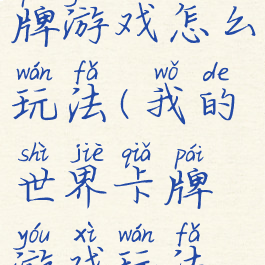 牌游戏怎么
wán fǎ wǒ de
玩法(我的
shì jiè qiǎ pái
世界卡牌
yóu xì wán fǎ
游戏玩法